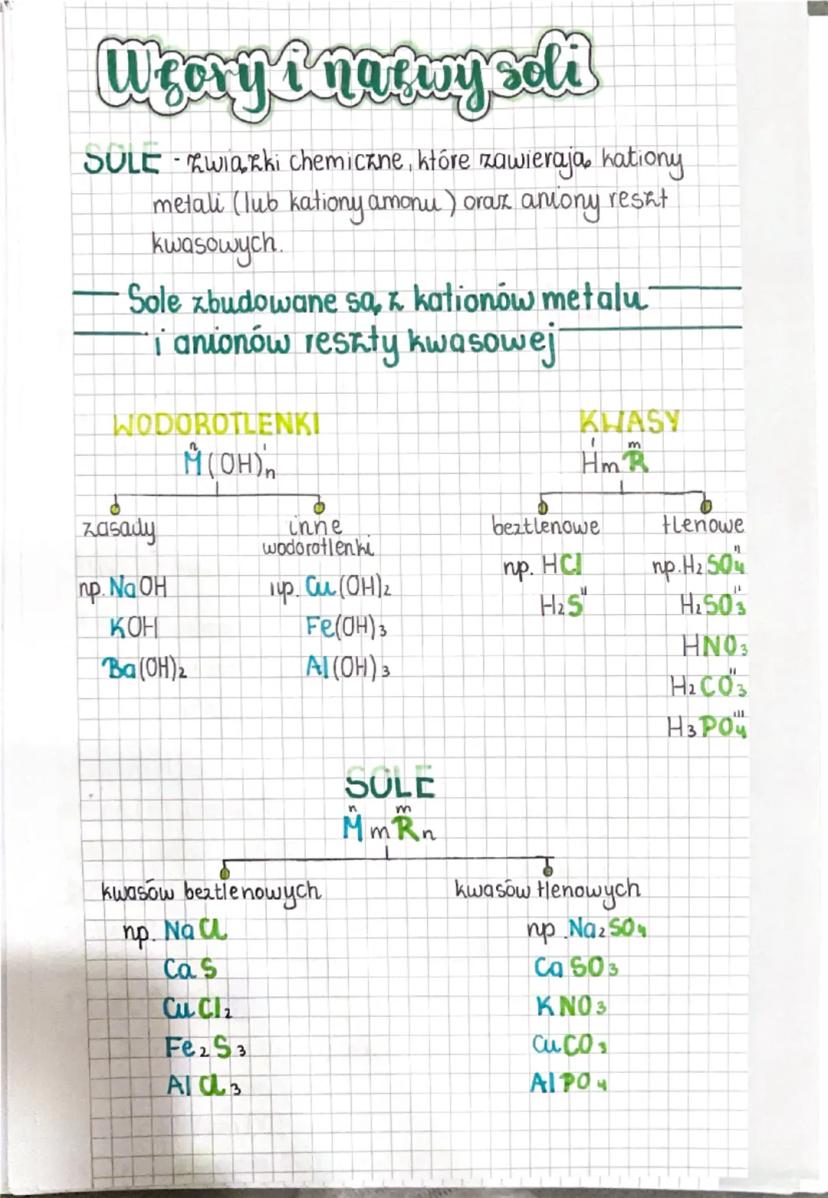 Wzory i nazwy soli
SOLE - związki chemiczne, które zawierają kationy
metali (lub kationy amonu) oraz aniony reszt
kwasowych.
Sole zbudowane są z kationów metalu
i anionów reszty kwasowej
WODOROTLENKI
n I
M(OH)n
zasady
np. NaOH
KOH
Ba(OH)₂
inne
wodorotlenki
np. Cu(OH)₂
Fe(OH)₃
Al(OH)₃
KWASY
I m
HmR
beztlenowe
np. HCl
H₂S II
tlenowe
np. H₂SO₄ II
H₂SO₃ II
HNO₃
H₂CO₃ II
H₃PO₄ III
SOLE
n m
MmRn
kwasów beztlenowych
np. NaCl
CaS
CuCl₂
Fe₂S₃
AlCl₃
kwasów tlenowych
np. Na₂SO₄
CaSO₃
KNO₃
CuCO₃
AlPO₄